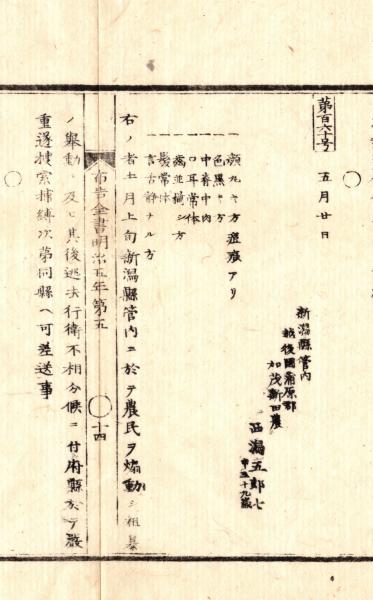 第百六十号
五月廿日
新潟縣管内
越後國蒲原郡
加茂新田農
西潟五郎七
申三十九歳
一顔丸キ方 痘痕アリ
一色黒キ方
一中脊中肉
一口耳常体
一歯並揃シ方
一髪常体
一言舌静ナル方
右ノ者十一月上旬新潟縣管内ニ於テ農民ヲ煽動シ粗暴
布告全書明治五年第五
十四
ノ擧動ニ及ヒ其後逃去行衛不相分候ニ付府縣於テ嚴
重遂捜索捕縛次第同縣ヘ可差送事